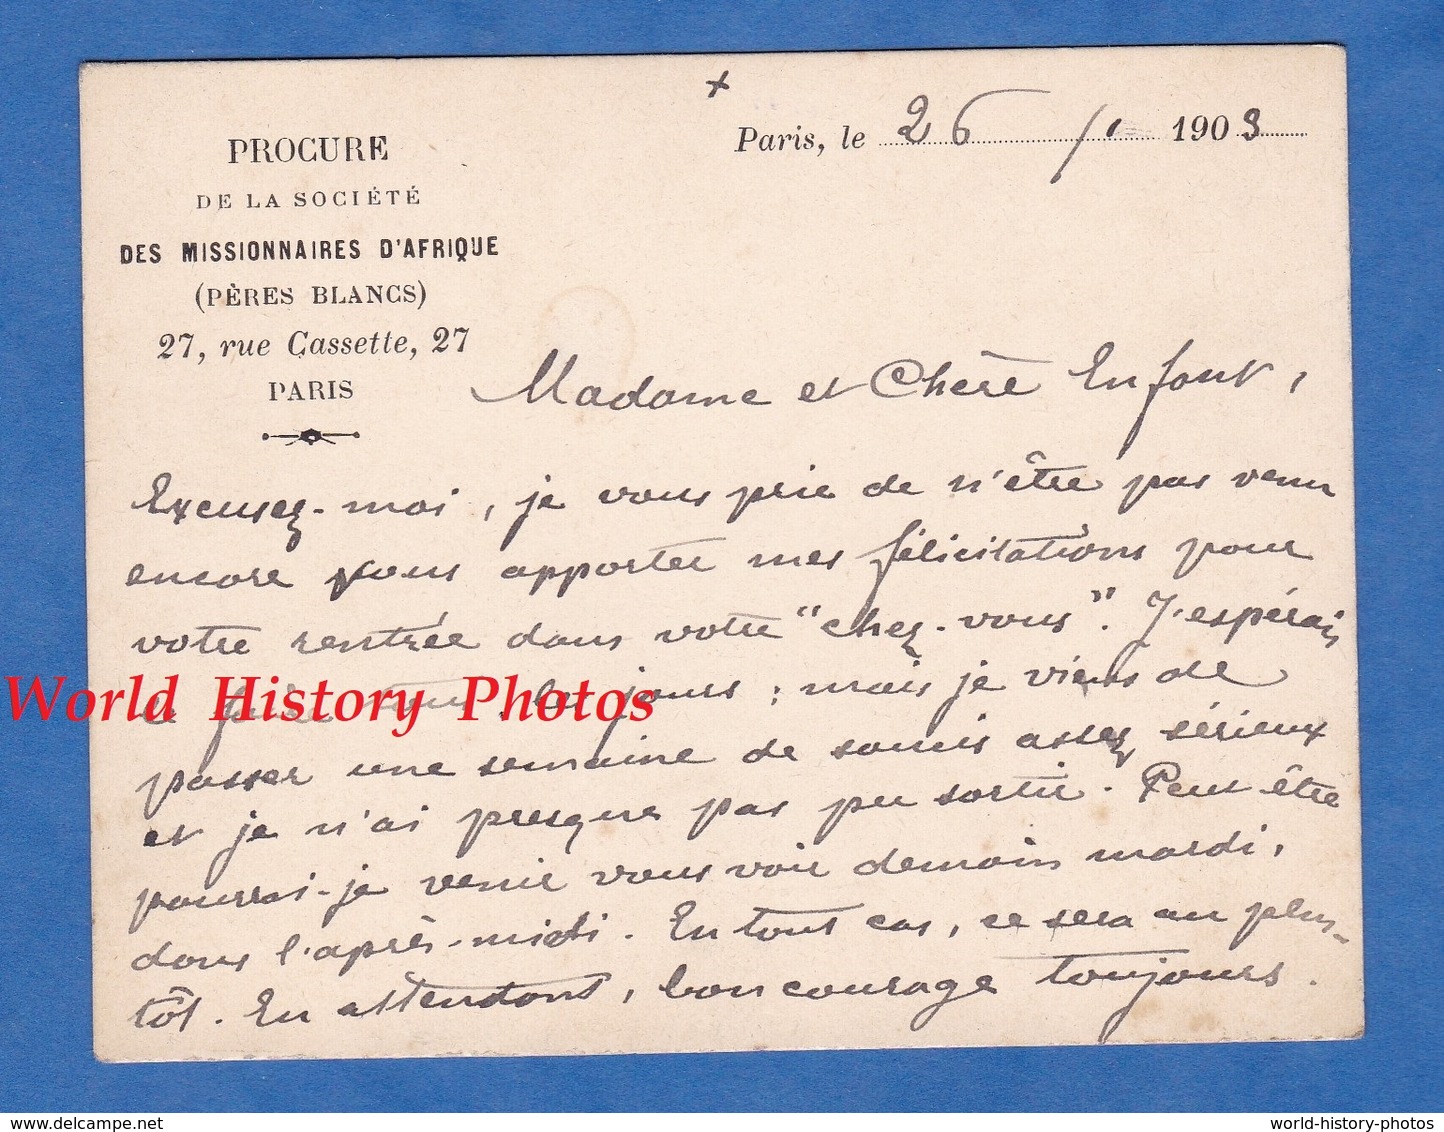 +
Paris, le 26 / 1 1903
PROCURE
DE LA SOCIÉTÉ
DES MISSIONNAIRES D'AFRIQUE
(PÈRES BLANCS)
27, rue Cassette, 27
PARIS
Madame et Chère Enfant,
Excusez-moi, je vous prie de n'être pas venu
encore vous apporter mes félicitations pour
votre rentrée dans votre "chez-vous". J'espérais
le faire tous les jours ; mais je viens de
passer une semaine de soucis assez sérieux
et je n'ai presque pas pu sortir. Peut être
pourrai-je venir vous voir demain mardi,
dans l'après-midi. En tout cas, ce sera au plus-
tôt. En attendant, bon courage toujours.
World History Photos
www.delcampe.net
world-history-photos